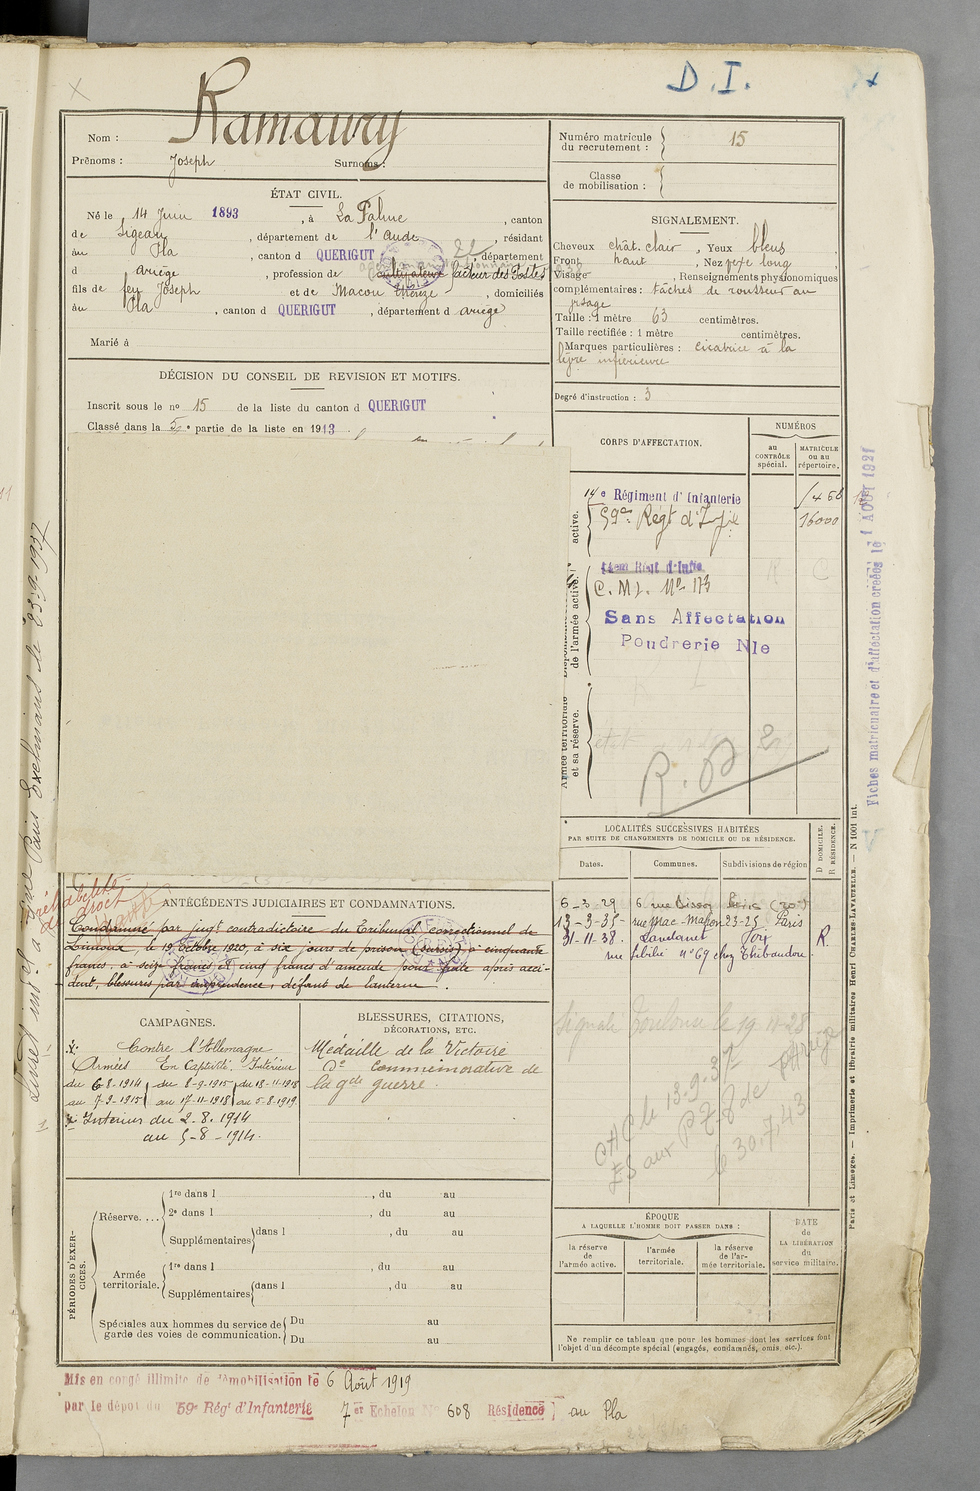 D. I.
Ramaury
Nom :
Prénoms : Joseph Surnoms :
ÉTAT CIVIL.
Né le 14 Juin 1893, à La Palme, canton
de Sigean, département de l'Aude, résidant
au Pla, canton d QUERIGUT, département
d Ariège, profession de cultivateur facteur des Postes
fils de feu Joseph et de Macou Thérèze, domiciliés
au Pla, canton d QUERIGUT, département d Ariège
Marié à
DÉCISION DU CONSEIL DE REVISION ET MOTIFS.
Inscrit sous le no 15 de la liste du canton d QUERIGUT
Classé dans la 5e partie de la liste en 1913.
Numéro matricule du recrutement : 15
Classe de mobilisation :
SIGNALEMENT.
Cheveux chât. clair, Yeux bleus
Front haut, Nez long
Visage, Renseignements physionomiques
complémentaires : tâches de rousseur au
visage
Taille : 1 mètre 63 centimètres.
Taille rectifiée : 1 mètre centimètres.
Marques particulières : Cicatrice à la
lèvre inférieure
Degré d'instruction : 3
CORPS D'AFFECTATION.
NUMÉROS
au CONTRÔLE spécial.
MATRICULE ou au répertoire.
active.
14e Régiment d'Infanterie
59e Régt d'Inf
16000
de l'armée active.
14em Régt d'Infie
C. M. I. No 173
Sans Affectation
Poudrerie Nle
Armée territoriale et sa réserve.
LOCALITÉS SUCCESSIVES HABITÉES
PAR SUITE DE CHANGEMENTS DE DOMICILE OU DE RÉSIDENCE.
Dates. Communes. Subdivisions de région
D DOMICILE.
R RÉSIDENCE.
6-3-29 6 rue Paris (20e)
13-3-35 rue Mac-Mahon 23-25 Paris
31-11-38. Foix R.
rue no 69 chez Thibaudou.
Signalé Toulouse le 19-11-28
CAC le 13.9.37
ES aux de l'Ariège
le 30.7.43
ANTÉCÉDENTS JUDICIAIRES ET CONDAMNATIONS.
réhabilité
de droit
Condamné par jugt contradictoire du Tribunal correctionnel de
Limoux, le 19 Octobre 1920, à six jours de prison (sursis) à cinquante
francs, à seize francs et cinq francs d'amende pour fuite après acci-
dent, blessures par imprudence, défaut de lanterne.
CAMPAGNES.
Contre l'Allemagne
Armées En Captivité. Intérieur
du 6-8-1914 du 8-9-1915 du 18-11-1918
au 7-9-1915 au 17-11-1918 au 5-8-1919.
Intérieur du 2-8-1914
au 5-8-1914.
BLESSURES, CITATIONS,
DÉCORATIONS, ETC.
Médaille de la Victoire
Do Commémorative de
la gde guerre.
PÉRIODES D'EXERCICES.
Réserve....
1re dans l , du au
2e dans l , du au
Supplémentaires dans l , du au
Armée territoriale.
1re dans l , du au
Supplémentaires dans l , du au
Spéciales aux hommes du service de
garde des voies de communication.
Du au
Du au
ÉPOQUE
A LAQUELLE L'HOMME DOIT PASSER DANS :
la réserve de l'armée active.
l'armée territoriale.
la réserve de l'armée territoriale.
DATE de LA LIBÉRATION du service militaire.
Ne remplir ce tableau que pour les hommes dont les services font
l'objet d'un décompte spécial (engagés, condamnés, omis, etc.).
Mis en congé illimité de démobilisation le 6 Août 1919
par le dépôt du 59e Rég d'Infanterie 7e Echelon No 608 Résidence au Pla
Fiches matriculaire et d'affectation créées le 1 AOUT 1921
Paris et Limoges. — Imprimerie et librairie militaires Henri CHARLES-LAVAUZELLE. — N 1001 int.